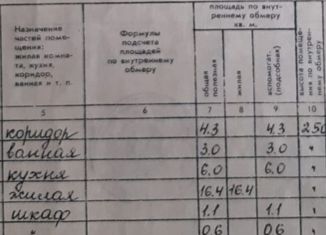 Назначение частей поме- щения: жилая комна- та, кухня, коридор, ванная и т. п.
Формулы подсчета площадей по внутреннему обмеру
площадь по внут- реннему обмеру кв. м.
общая полезная
жилая
вспомогат. (подсобная)
высота помеще- ния по внутрен- нему обмеру
5 6 7 8 9 10
коридор 4.3 4.3 2.50
ванная 3.0 3.0 "
кухня 6.0 6.0 "
жилая 16.4 16.4 "
шкаф 1.1 1.1 "
" 0.6 0.6 "